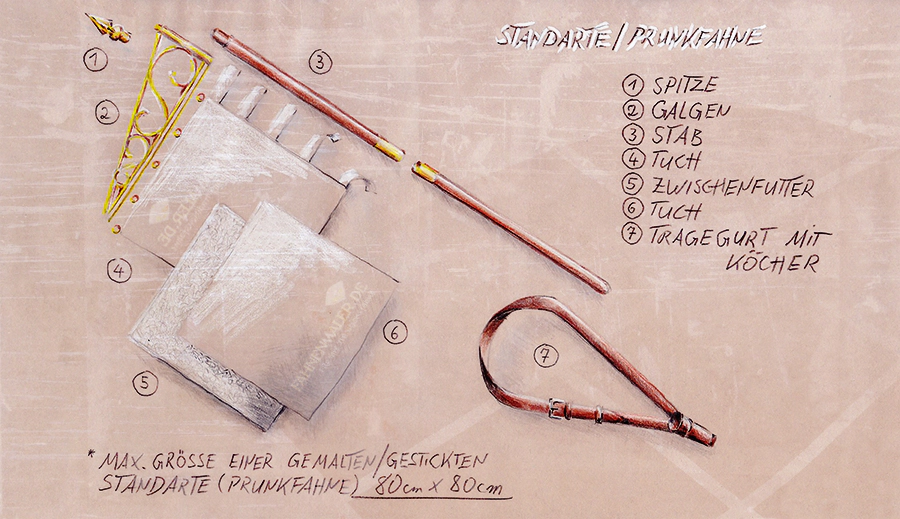 STANDARTE/PRUNKFAHNE
① SPITZE
② GALGEN
③ STAB
④ TUCH
⑤ ZWISCHENFUTTER
⑥ TUCH
⑦ TRAGEGURT MIT
KÖCHER
①
②
③
④
⑤
⑥
⑦
* MAX. GRÖSSE EINER GEMALTEN/GESTICKTEN
STANDARTE (PRUNKFAHNE) 80cm x 80cm